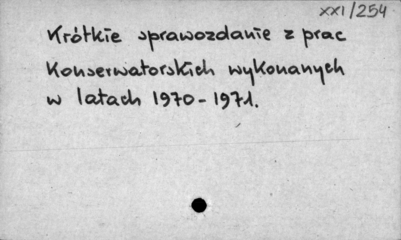 XXI/254
Krótkie sprawozdanie z prac
Konserwatorskich wykonanych
w latach 1970-1971.